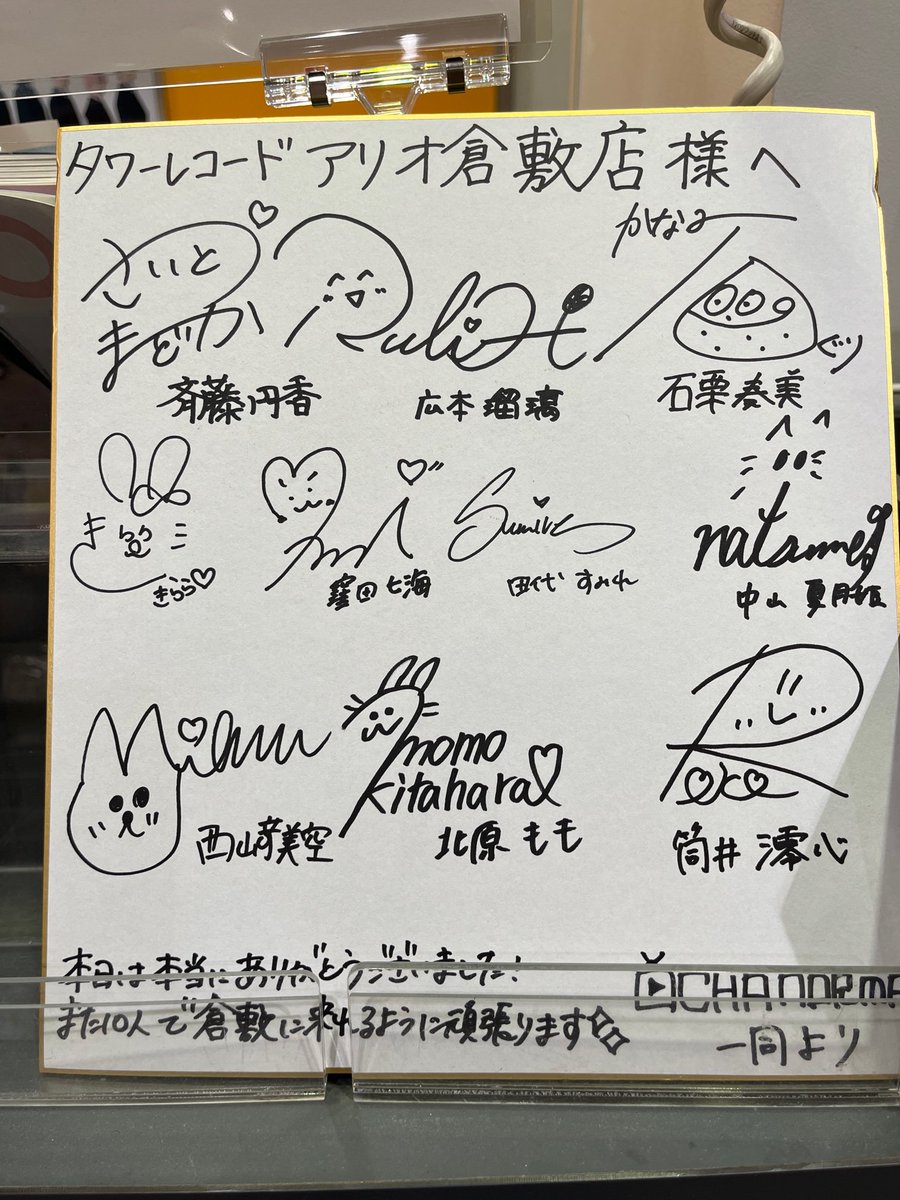 タワーレコード アリオ倉敷店様へ
さいと
まどか
斉藤円香
Ruli
広本瑠璃
かなみ
ぐり
石栗奏美
きらら
窪田七海
Sumire
田代すみれ
natsume
中山夏月姫
Miku
西山奇美空
momo
kitahara
北原もも
筒井澪心
本日は本当にありがとうございました!
また10人で倉敷に来れるように頑張ります
CHANARMA
一同より